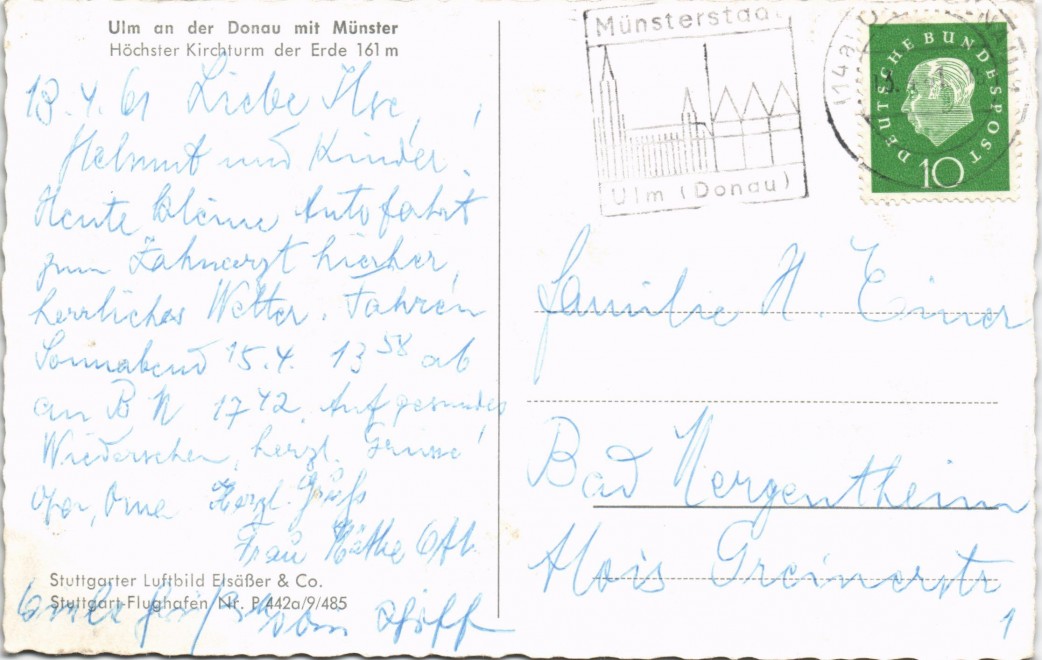 Ulm an der Donau mit Münster
Höchster Kirchturm der Erde 161 m
13.4.61 Liebe Ilse,
Helmut und Kinder!
Heute kleine Autofahrt
zum Zahnarzt hierher,
herrliches Wetter. Fahren
Sonnabend 15.4. 13 58 ab
an B M 17 42. Auf gesundes
Wiedersehen, herzl. Grüsse
Opa, Oma Herzl. Gruß
Frau Käthe
von
Stuttgarter Luftbild Elsäßer & Co.
Stuttgart-Flughafen Nr. P 442a/9/485
Münsterstadt
Ulm (Donau)
(14a)
DEUTSCHE BUNDESPOST
10
Familie H.
Bad Mergentheim
Alois Greinerstr
1